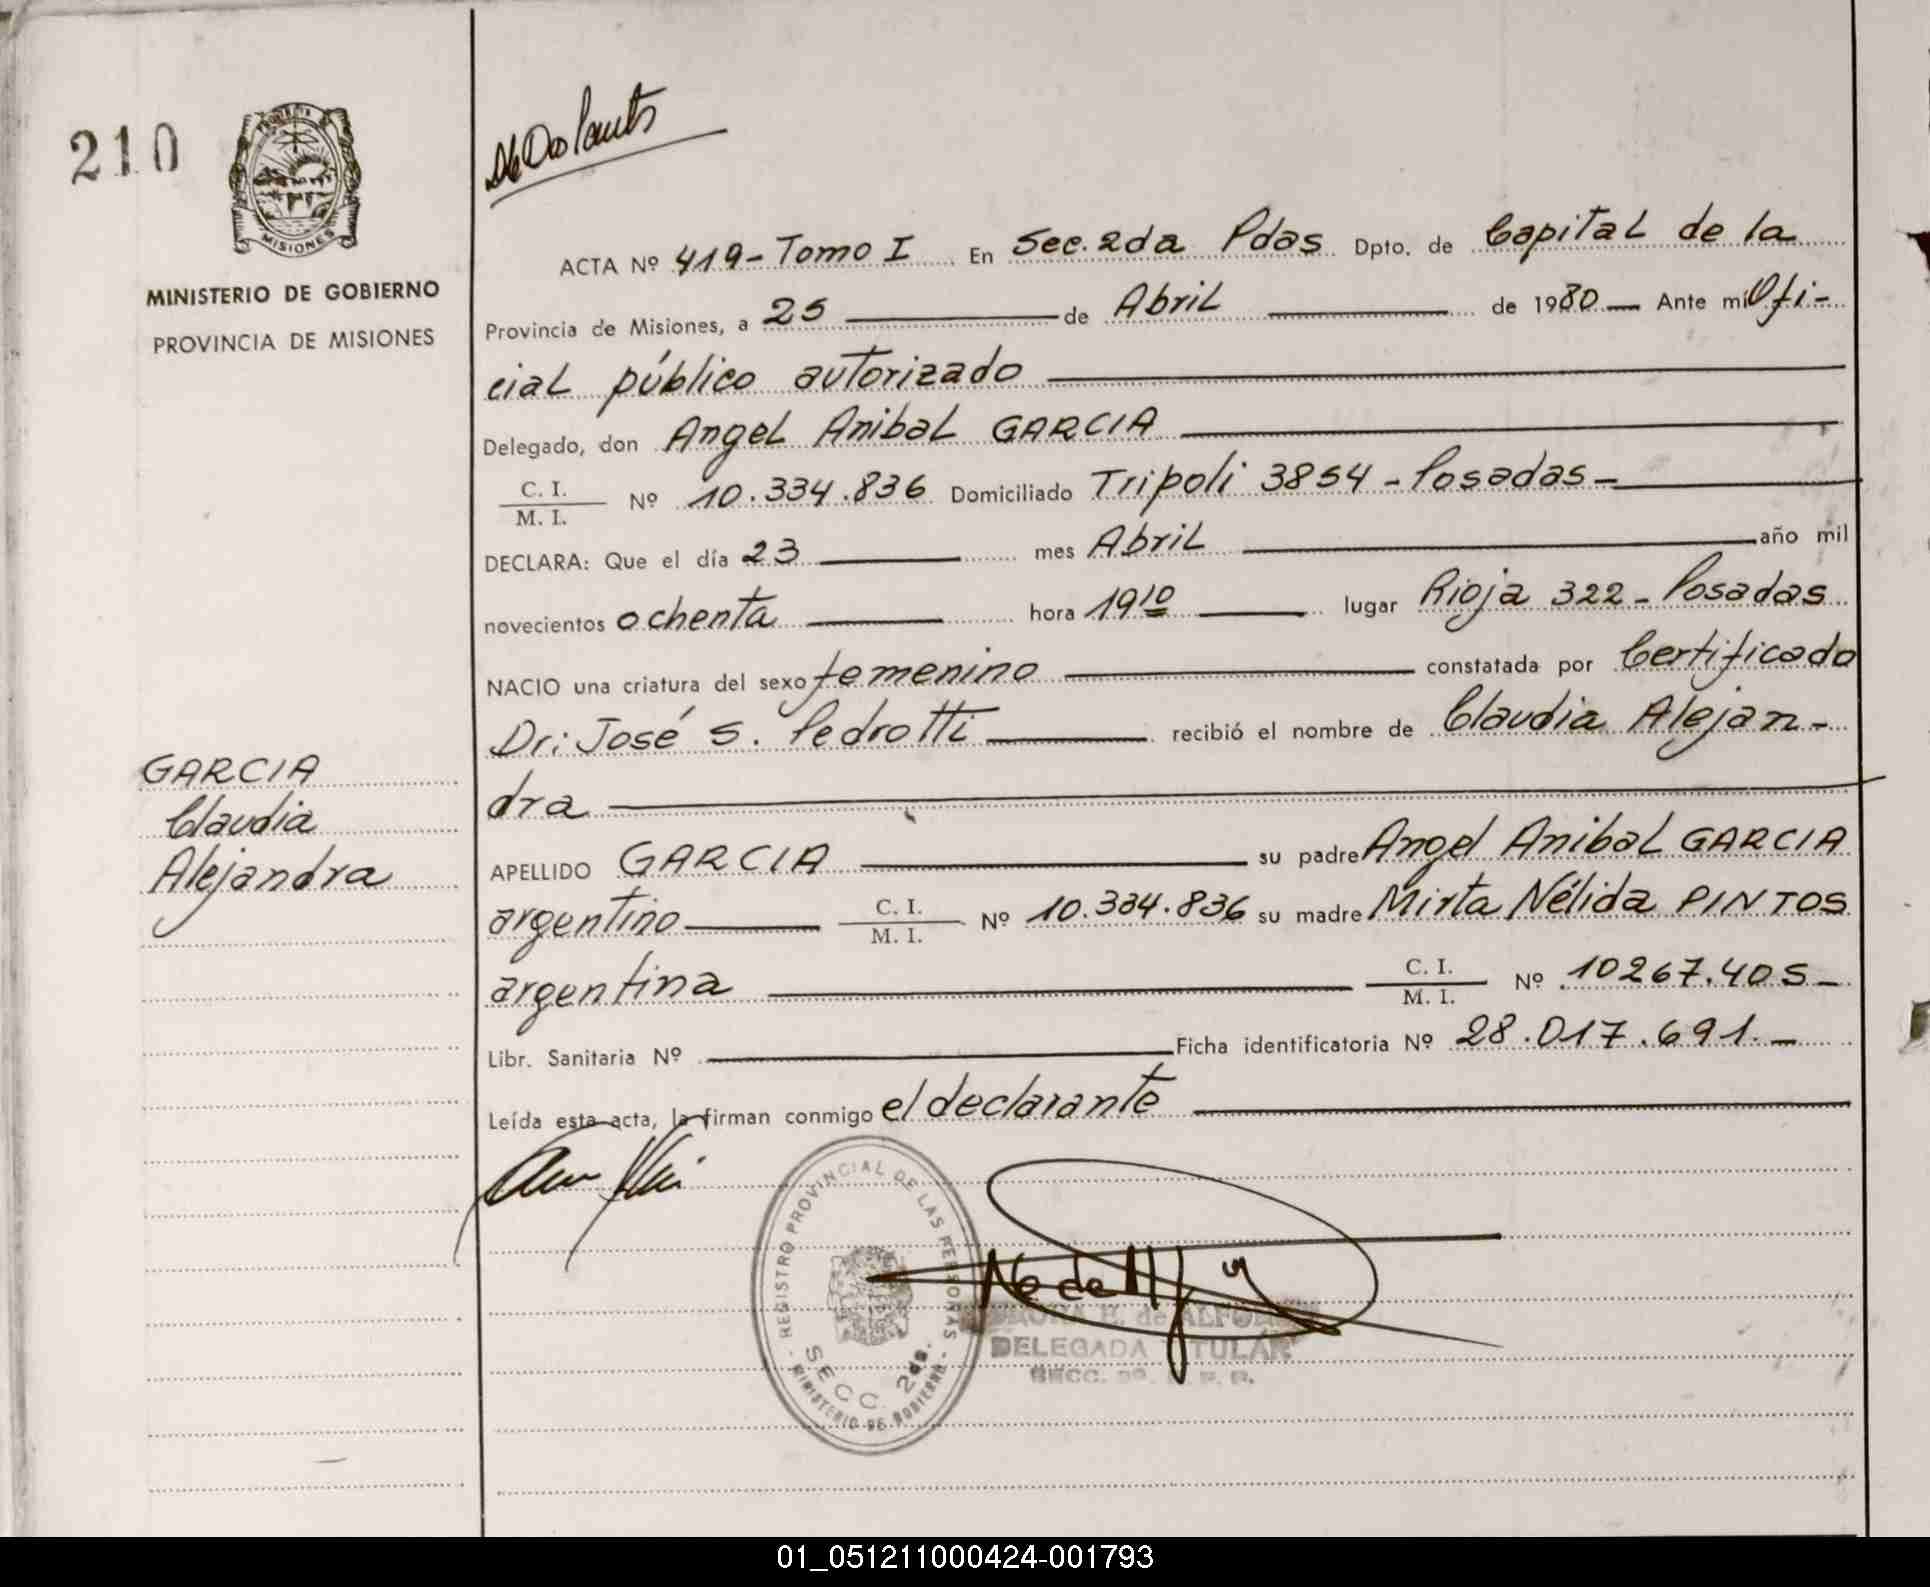 210
PROVINCIA
MISIONES
MINISTERIO DE GOBIERNO
PROVINCIA DE MISIONES
GARCIA
Claudia
Alejandra
ACTA Nº 419-Tomo I En Sec. 2da Pdas Dpto. de Capital de la
Provincia de Misiones, a 25 de Abril de 1980 Ante mi Ofi-
cial público autorizado
Delegado, don Angel Anibal GARCIA
C. I.
M. I. Nº 10.334.836 Domiciliado Tripoli 3854 - Posadas -
DECLARA: Que el día 23 mes Abril año mil
novecientos ochenta hora 19 10 lugar Rioja 322 - Posadas
NACIO una criatura del sexo femenino constatada por Certificado
Dr: José S. Pedrotti recibió el nombre de Claudia Alejan-
dra
APELLIDO GARCIA su padre Angel Anibal GARCIA
argentino C. I.
M. I. Nº 10.334.836 su madre Mirta Nélida PINTOS
argentina C. I.
M. I. Nº 10267.405 -
Libr. Sanitaria Nº Ficha identificatoria Nº 28.017.691. -
Leída esta acta, la firman conmigo el declarante
REGISTRO PROVINCIAL DE LAS PERSONAS
SECC. 2da.
MINISTERIO DE GOBIERNO
DELEGADA TITULAR
01_051211000424-001793